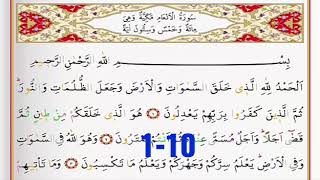 سُورَةُ الْاَنْعَامِ مَكِّيَّةٌ وَهِيَ
مِائَةٌ وَخَمْسٌ وَسِتُّونَ اٰيَةً
بِسْـــمِ اللّٰهِ الرَّحْمٰنِ الرَّحٖيمِ
اَلْحَمْدُ لِلّٰهِ الَّذٖى خَلَقَ السَّمٰوَاتِ وَالْاَرْضَ وَجَعَلَ الظُّلُمَاتِ وَالنُّورَ
ثُمَّ الَّذٖينَ كَفَرُوا بِرَبِّهِمْ يَعْدِلُونَ ﴿١﴾ هُوَ الَّذٖى خَلَقَكُمْ مِنْ طٖينٍ ثُمَّ
قَضٰٓى اَجَلًا وَاَجَلٌ مُسَمًّى عِنْدَهُ تَمْتَرُونَ ﴿٢﴾ وَهُوَ اللّٰهُ فِى السَّمٰوَاتِ
وَفِى الْاَرْضِ يَعْلَمُ سِرَّكُمْ وَجَهْرَكُمْ وَيَعْلَمُ مَا تَكْسِبُونَ ﴿٣﴾ وَمَا تَاْتٖيهِمْ
1-10